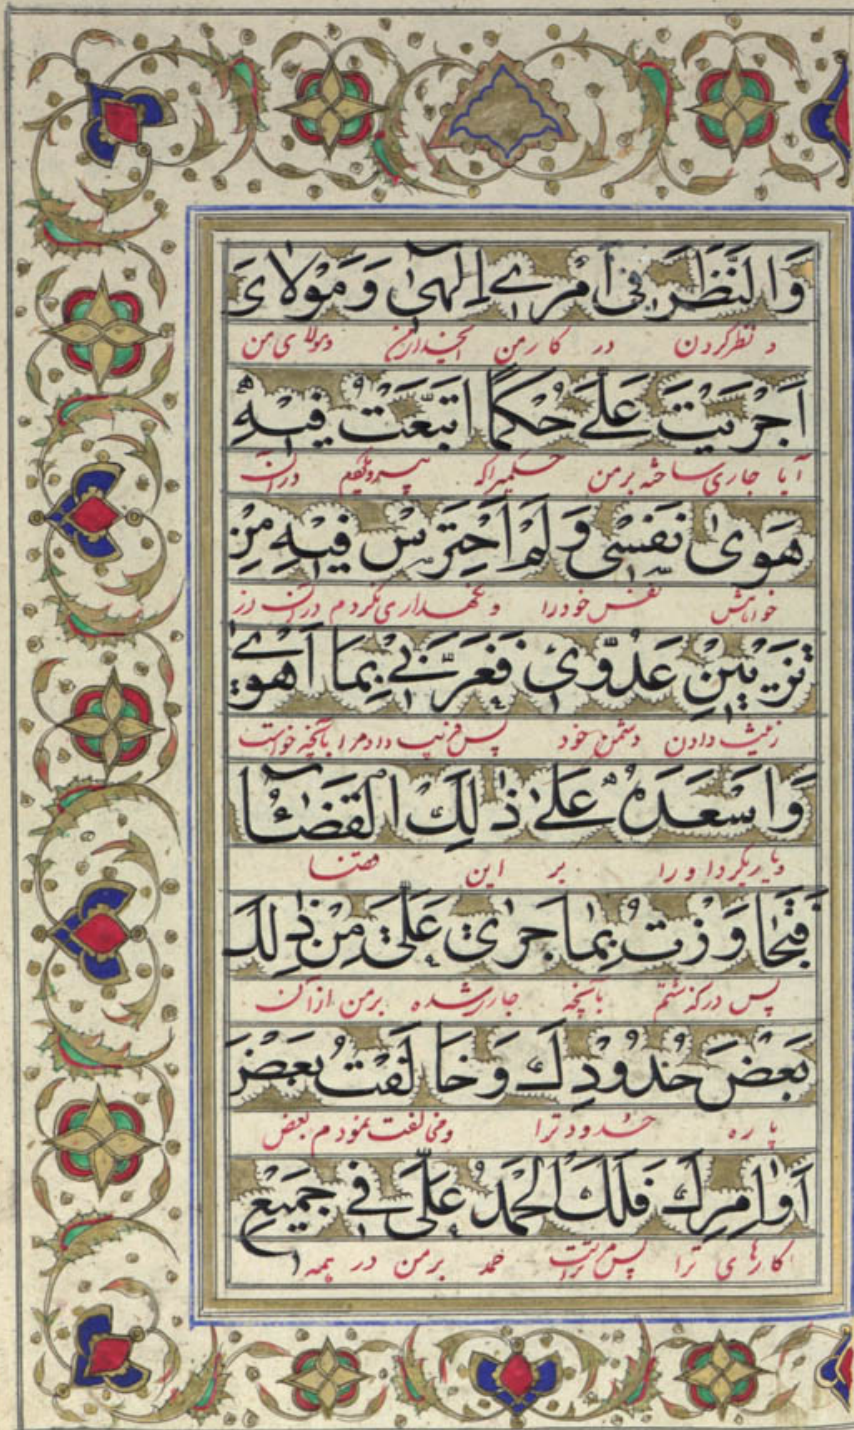 وَالنَّظَرَ فِی اَمْرِے اِلٰهِی وَمَوْلَایَ
و نظر کردن در کار من ایخدای من و مولای من
اَجْرَیْتَ عَلَیَّ حُکْمًا اتَّبَعْتُ فِیْهِ
آیا جاری ساخته بر من حکمیرا که پیرویکنم در آن
هَوٰی نَفْسِی وَلَمْ اَحْتَرِسْ فِیْهِ مِنْ
خواهش نفس خود را و نگهداری نکردم در آن از
تَزْیِیْنِ عَدُوِّی فَغَرَّنِی بِمَا اَهْوٰے
زینت دادن دشمن خود پس فریب داد مرا بآنچه خواست
وَاَسْعَدَهُ عَلٰی ذٰلِکَ الْقَضٰٓا
و یاری کرد او را بر این قضا
فَتَجَاوَزْتُ بِمَا جَرٰی عَلَیَّ مِنْ ذٰلِکَ
پس در گذشتم بآنچه جاری شده بر من از آن
بَعْضَ حُدُودِکَ وَخَالَفْتُ بَعْضَ
پاره حدود ترا و مخالفت نمودم بعض
اَوَامِرِکَ فَلَکَ الْحَمْدُ عَلَیَّ فِی جَمِیْعِ
کارهای ترا پس تراست حمد بر من در همه